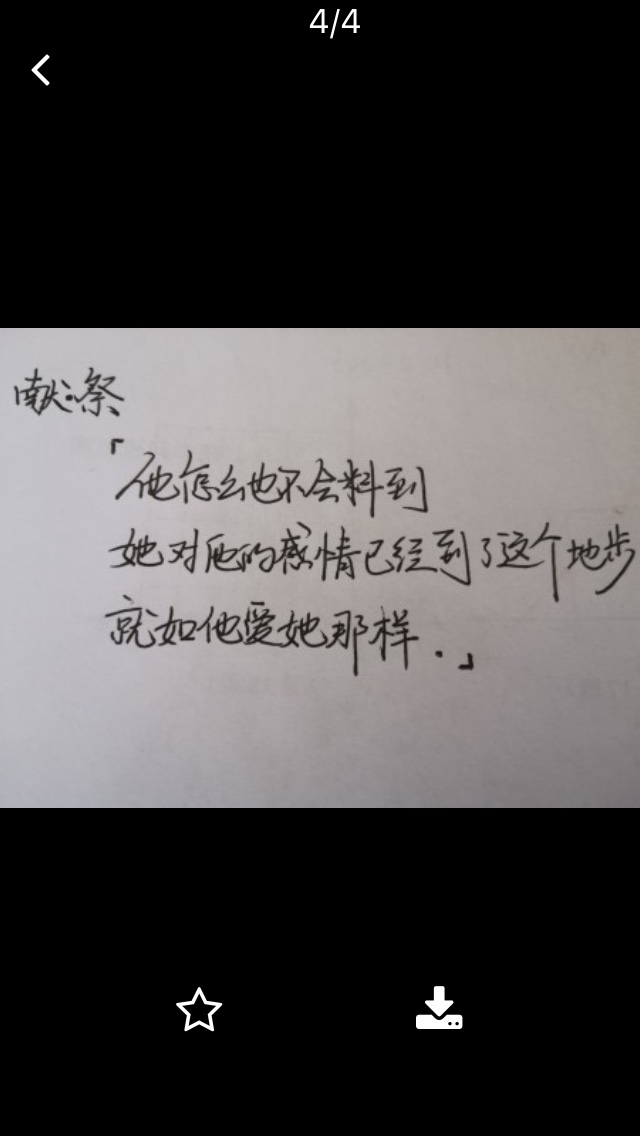 4/4
献祭
「他怎么也不会料到
她对他的感情已经到了这个地步
就如他爱她那样.」